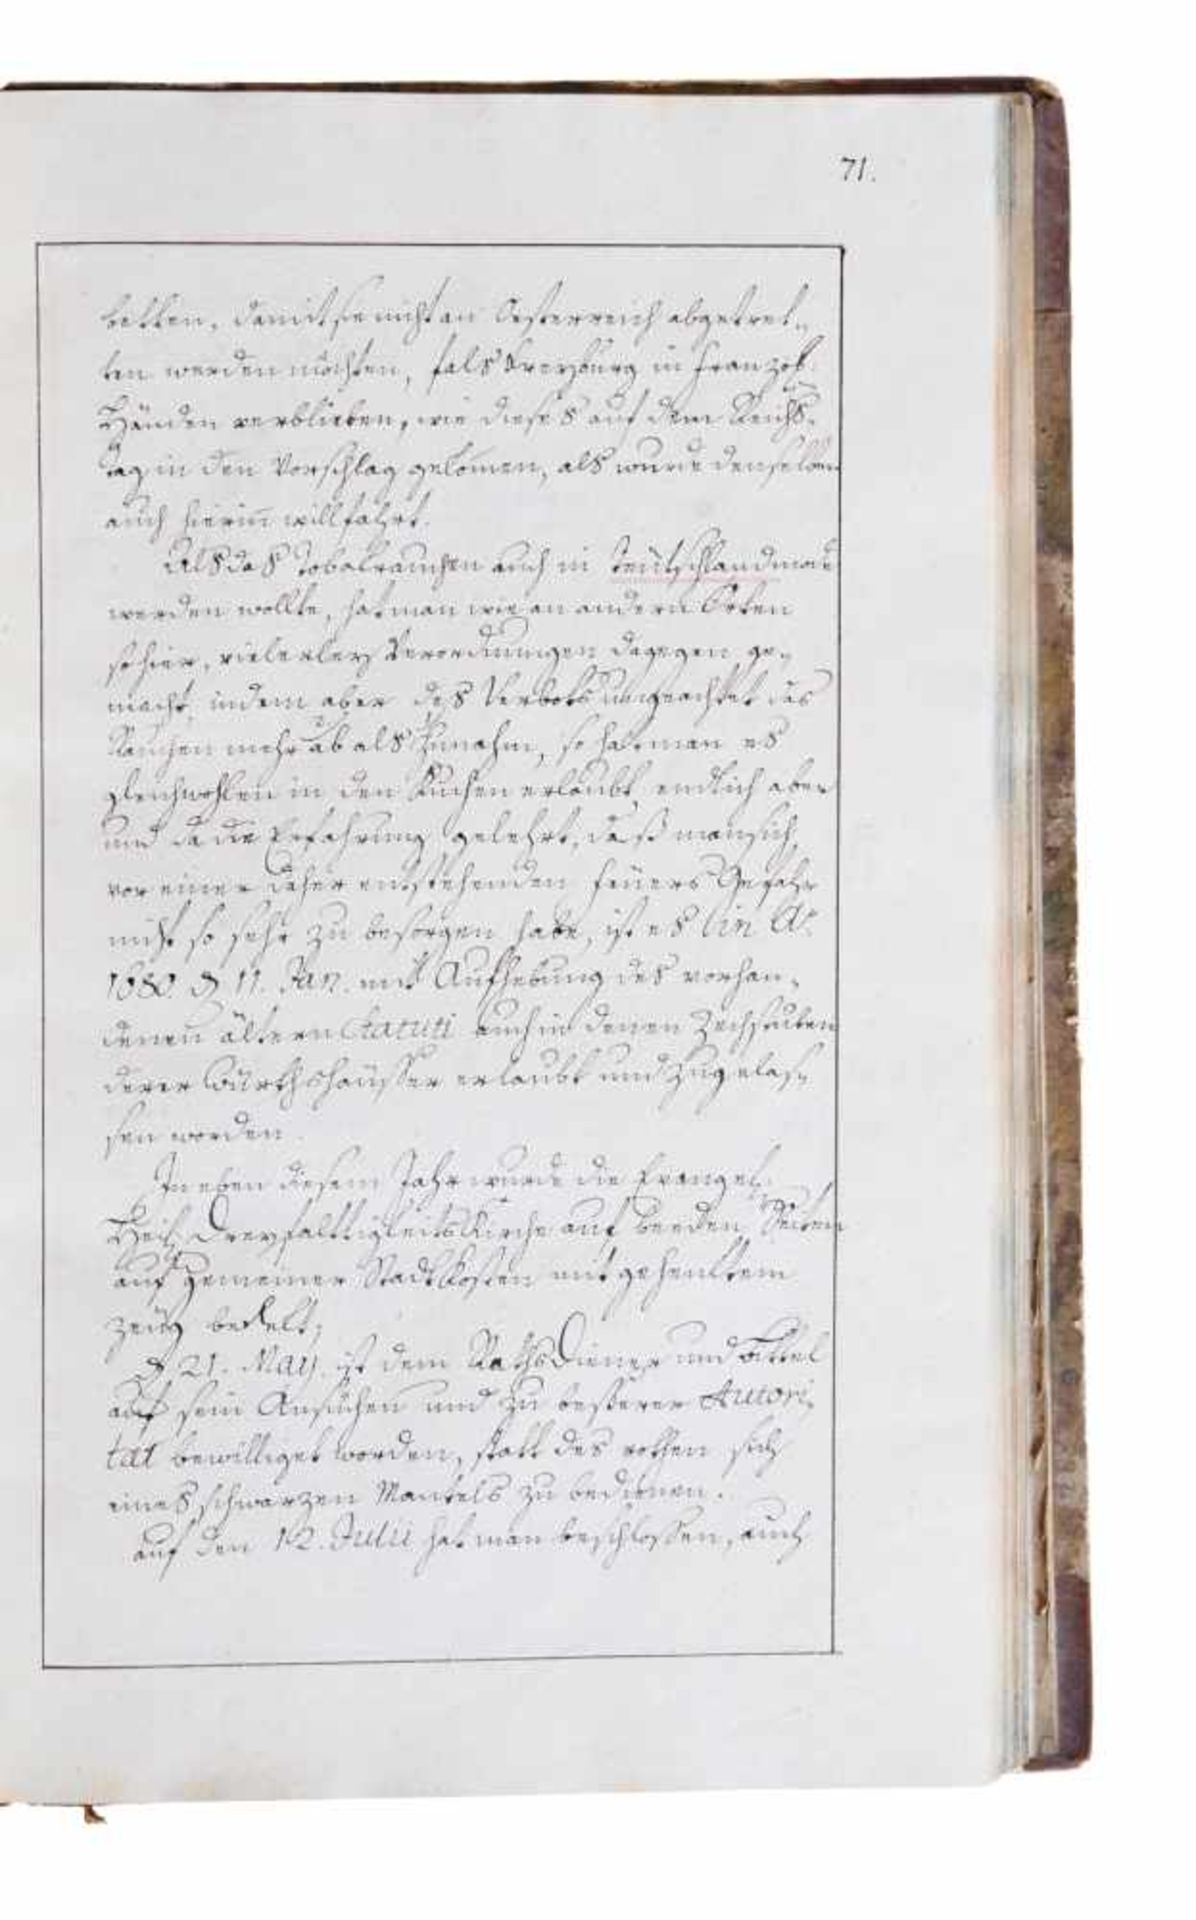 71.
betten, damit sie nicht an Oesterreich abgetret-
ten werden möchten, fals Freyburg in Französ.
Händen verblieben, wie dieses auf dem Reichs-
tag in den Vorschlag gekom̄en, als wurde denselben
auch hierin̄ willfahrt.
Als das Tobakrauchen auch in Teütschland mode
werden wollte, hat man wie an andern Orten
so hier, vielerley Verordnungen dagegen ge-
macht, indem aber des Verbots ungeachtet das
Rauchen mehr ab als Zunahm, so hat man es
gleichwohlen in den Kuchen erlaubt, endlich aber
und da die Erfahrung gelehrt, daß man sich
vor einer daher entstehenden feüers Gefahr
nicht so sehr zu besorgen habe, ist es in Ao.
1680. d 11. Jan. mit Aufhebung des vorhan-
denen ältern Statuti auch in denen Zechstuben
derer Würthshäusser erlaubt und zugelas-
sen worden.
In eben diesem Jahr wurde die Evangel.
Heil. DreyfalttigkeitsKirche auf beeden Seiten
auf gemeiner Stadt Kosten mit gehenktem
zeüg bedekt;
d 21. May. ist dem RathsDiener und Bittel
auf sein Ansuchen und zu besserer Autori-
tät bewilliget worden, statt des rothen sich
eines schwarzen Mantels zu bedienen.
auf den 12. Julii hat man beschlossen, auch